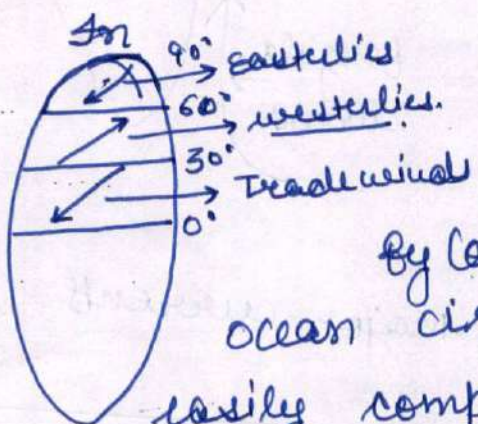 In
90° → easterlies
60° → westerlies.
30° → Trade winds
0°
By Co
ocean ci
easily comp